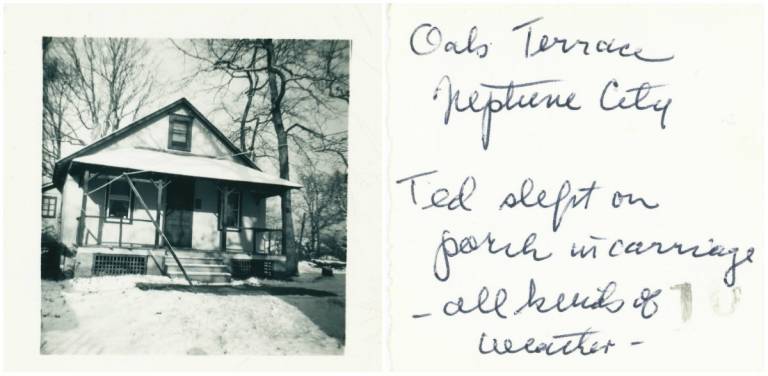 Oaks Terrace
Neptune City
Ted slept on
porch in carriage
- all kinds of
weather -
10